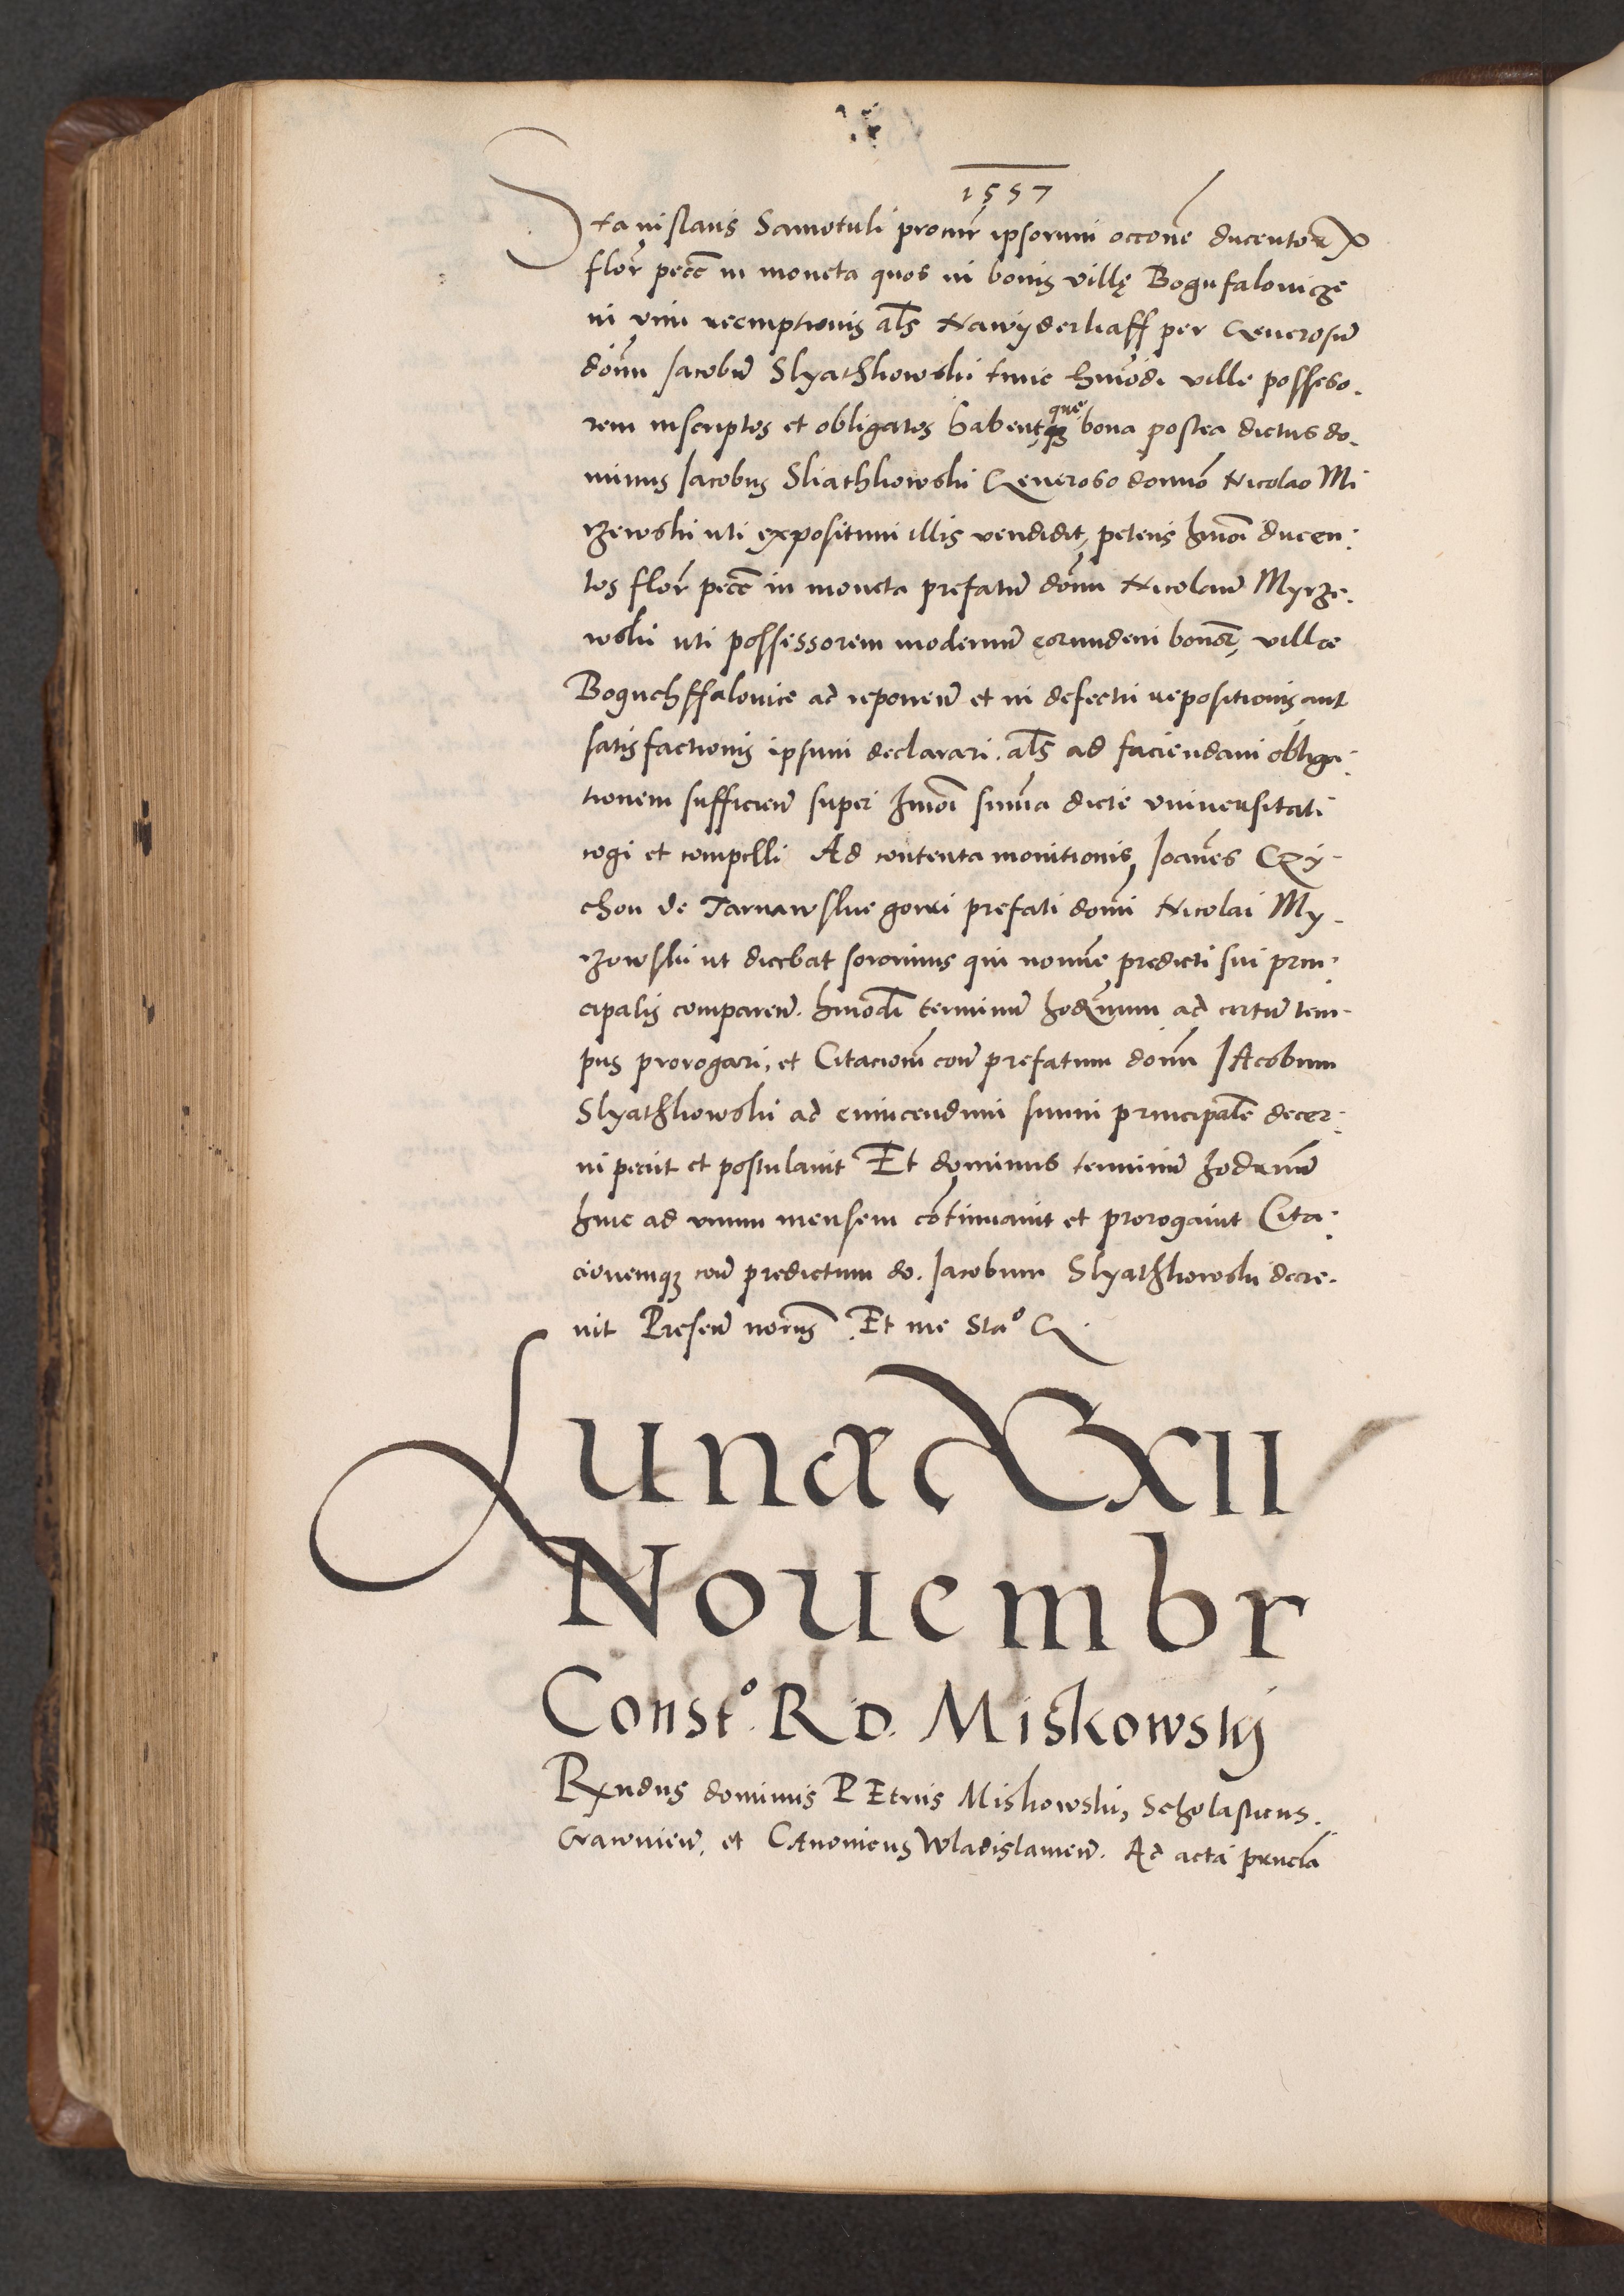 1557
Stanislaus Samotuli procur̄ ipsorum occone ducentor
flor̄ pecc̄ in moneta quos in bonis villę Bogufalowicze
in vim reemptionis al̄s Nawyderkaff per Generosū
dōm̄ Jacobū Slyathkowski tunc hm̄ōdi ville possesso-
rem inscriptos et obligatos habent, que bona postea dictus do-
minus Jacobus Sliathkowski Generoso domno Nicolao Mi
rzewski uti expositum illis vendidit, petens hm̄oi ducen-
tos flor̄ pecc̄ in moneta prefatū dōm̄ Nicolaū Myrze-
wski uti possessorem modernū eorundem bonor̄, villæ
Boguchffalowice ad reponen̄ et in defectu repositionis aut
satisfactionis ipsum declarari. al̄s ad faciendam obliga-
tionem sufficien̄ super hm̄oi sum̄a dictę universitati
cogi et compelli Ad contenta monitionis, Joan̄es Czy-
chon de Tarnaw prefati dōm̄i Nicolai My-
rzowski ut dicebat sororinus qui nom̄e predicti sui prin-
cipalis comparen̄. hm̄ōdi terminū hodiernum ad certū tem-
pus prorogari, et Citacionē con̄ prefatum dōm̄ JAcobum
Slyathkowski ad evincendum suum principalē decer-
ni peciit et postulavit Et dominus terminū hodiernū
hinc ad unum mensem cōtinuavit et prorogavit Cita-
cionemqȝ con̄ predictum do. Jacobum Slyathkowski decre-
vit Presen̄ Et me Sta° G.
Lunæ d XXII
Novembr
Const°. R D. Miskowskij
Rxndus dominus PEtrus Miskowski, Scholasticus.
Cracovien̄. et CAnonicus Wladislavien̄. Ad acta prnciā